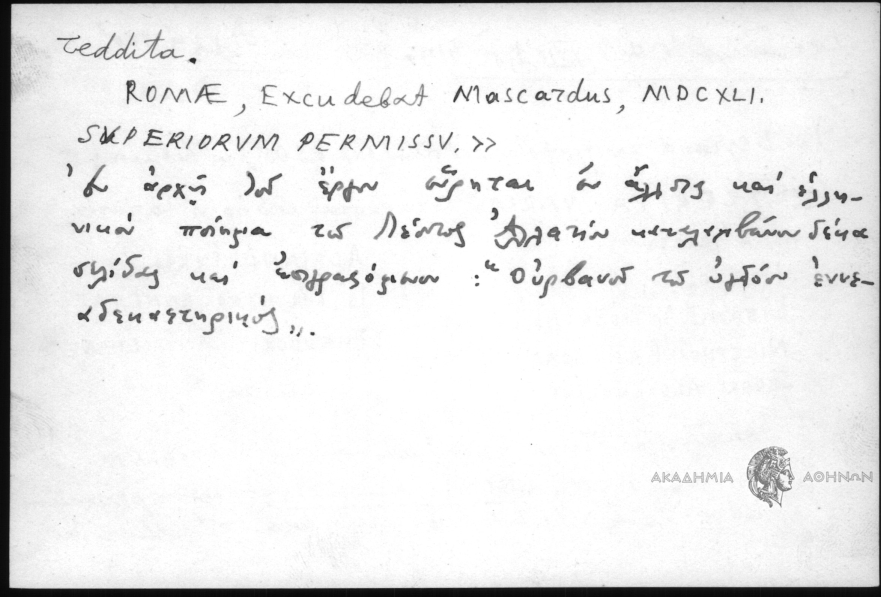 reddita.
ROMÆ, Excudebat Mascardus, MDCXLI.
SUPERIORVM PERMISSV.»
Ἐν ἀρχῇ τοῦ ἔργου εὕρηται ἐν ἄλλοις καὶ ἑλλη-
νικὸν ποίημα τοῦ Λέοντος Ἀλλατίου καταλαμβάνον δέκα
σελίδας καὶ ἐπιγραφόμενον : "Οὐρβανοῦ τοῦ ὀγδόου ἐννε-
αδεκαετηρικός".
ΑΚΑΔΗΜΙΑ ΑΘΗΝΩΝ